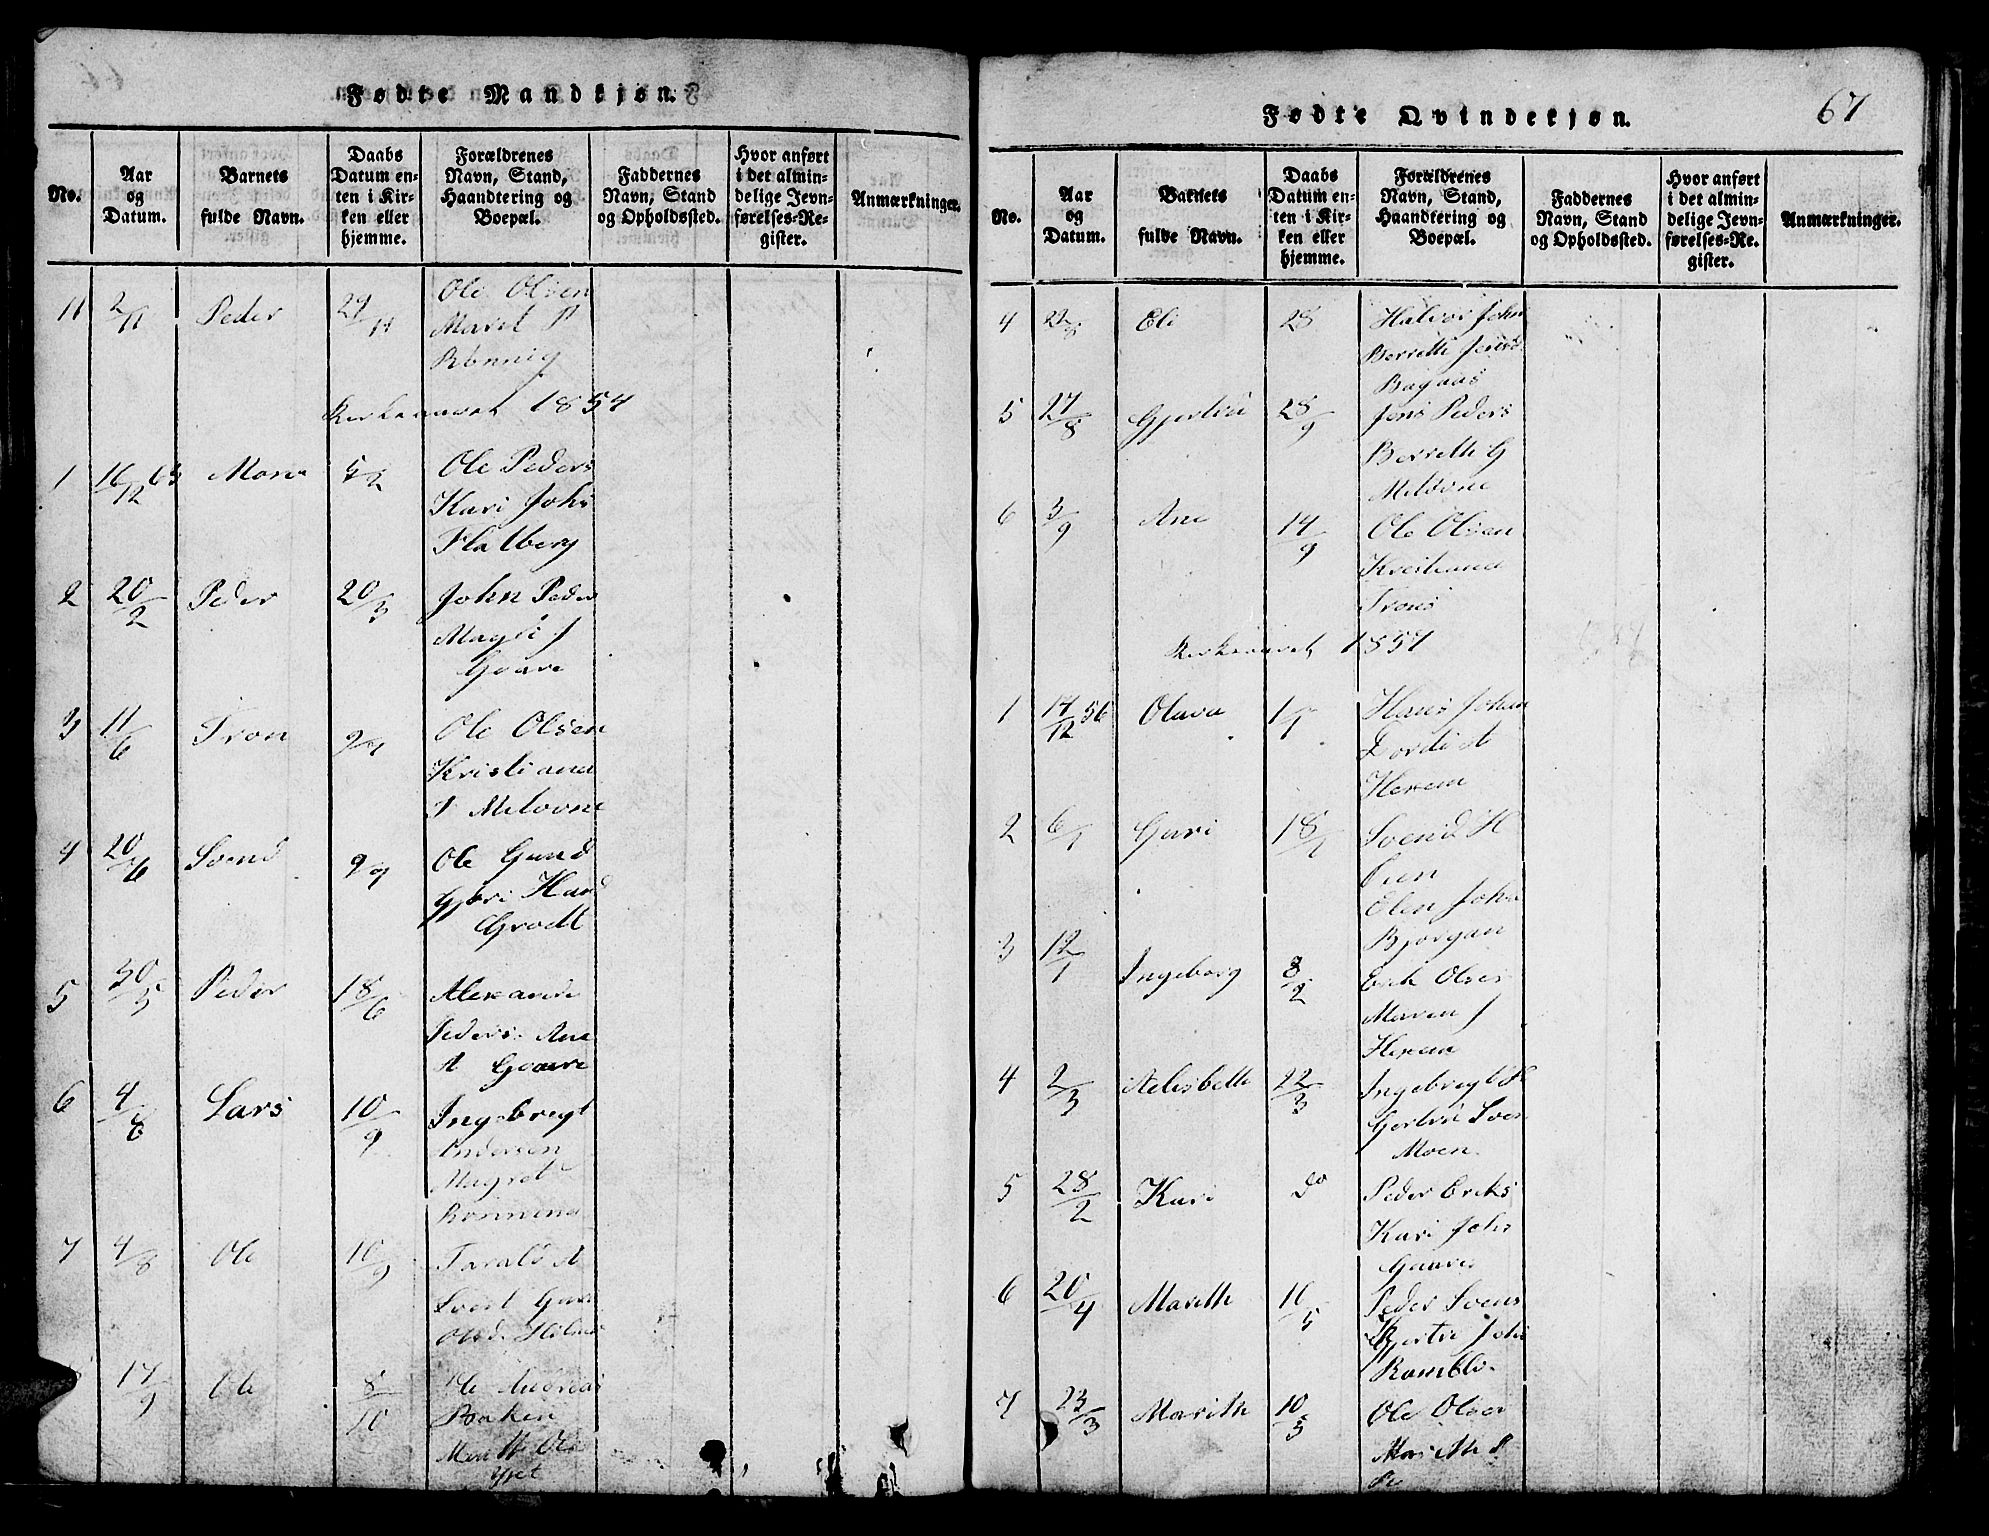 Fødte Mandkjøn.
No.
Aar
og
Datum.
Barnets
fulde Navn.
Daabs
Datum en-
ten i Kir-
ken eller
hjemme.
Forældrenes
Navn, Stand,
Haandtering og
Boepæl.
Faddernes
Navn, Stand
og Opholdssted.
Hvor anført
i det almin-
delige Jevn-
førelses-Re-
gister.
Anmærkninger.
11 2/11 Peder 29/11 Ole Olsen
Marit P
Rønnig
Kirkeaaret 1857
1 16/12 Mons 5/2 Ole Peders
Kari Johs
Flatberg
2 20/2 Peder 20/3 John Peder
Magli J
Gaare
3 11/6 Tron Ole Olsen
Kristiana
Meløvne
4 20/6 Svend Ole Gund
Gjøri Hans
Grødt
5 30/5 Peder 18/6 Alexande
Peders. Ane
A Gaare
6 4/8 Lars 10/9 Ingebregt
Andersen
Magret
Rønning
7 4/8 Ole 10/9 Tarald A
Gure
17/9 Ole 8/10 Ole Andreas
Baken
Marith Ols
67
Fødte Qvindekjøn.
No.
Aar
og
Datum.
Barnets
fulde Navn.
Daabs
Datum en-
ten i Kir-
ken eller
hjemme.
Forældrenes
Navn, Stand,
Haandtering og
Boepæl.
Faddernes
Navn, Stand
og Opholdssted.
Hvor anført
i det almin-
delige Jevn-
førelses-Re-
gister.
Anmærkninger.
4 22/8 Eli 28 Halvor John
Berreth Jens
Bagaas
5 27/8 Gjertru 28/9 Jens Peders
Berreth G
Meløvne
6 3/9 Ane 14/9 Ole Olsen
Kristiana
Trons
Kirkeaaret 1857
1 17/12 56 Olava 1/1 Hans Johan
Dordi A
Hexem
2 6/1 Guri 18/1 Svend H
Øien
Elen John
Bjørgan
3 12/1 Ingeborg 8/2 Erik Olsen
Maren J
Hexem
4 2/3 Aelisbeth 22/3 Ingebregt H
Gertru Sven
Moen.
5 28/2 Kari do Peder Eriks
Kari Johs
Gaare
6 20/4 Mareth 16/5 Peder Svens
Kjertre Johs
Ramblo.
7 23/3 Marith 10/5 Ole Olsen
Marith P